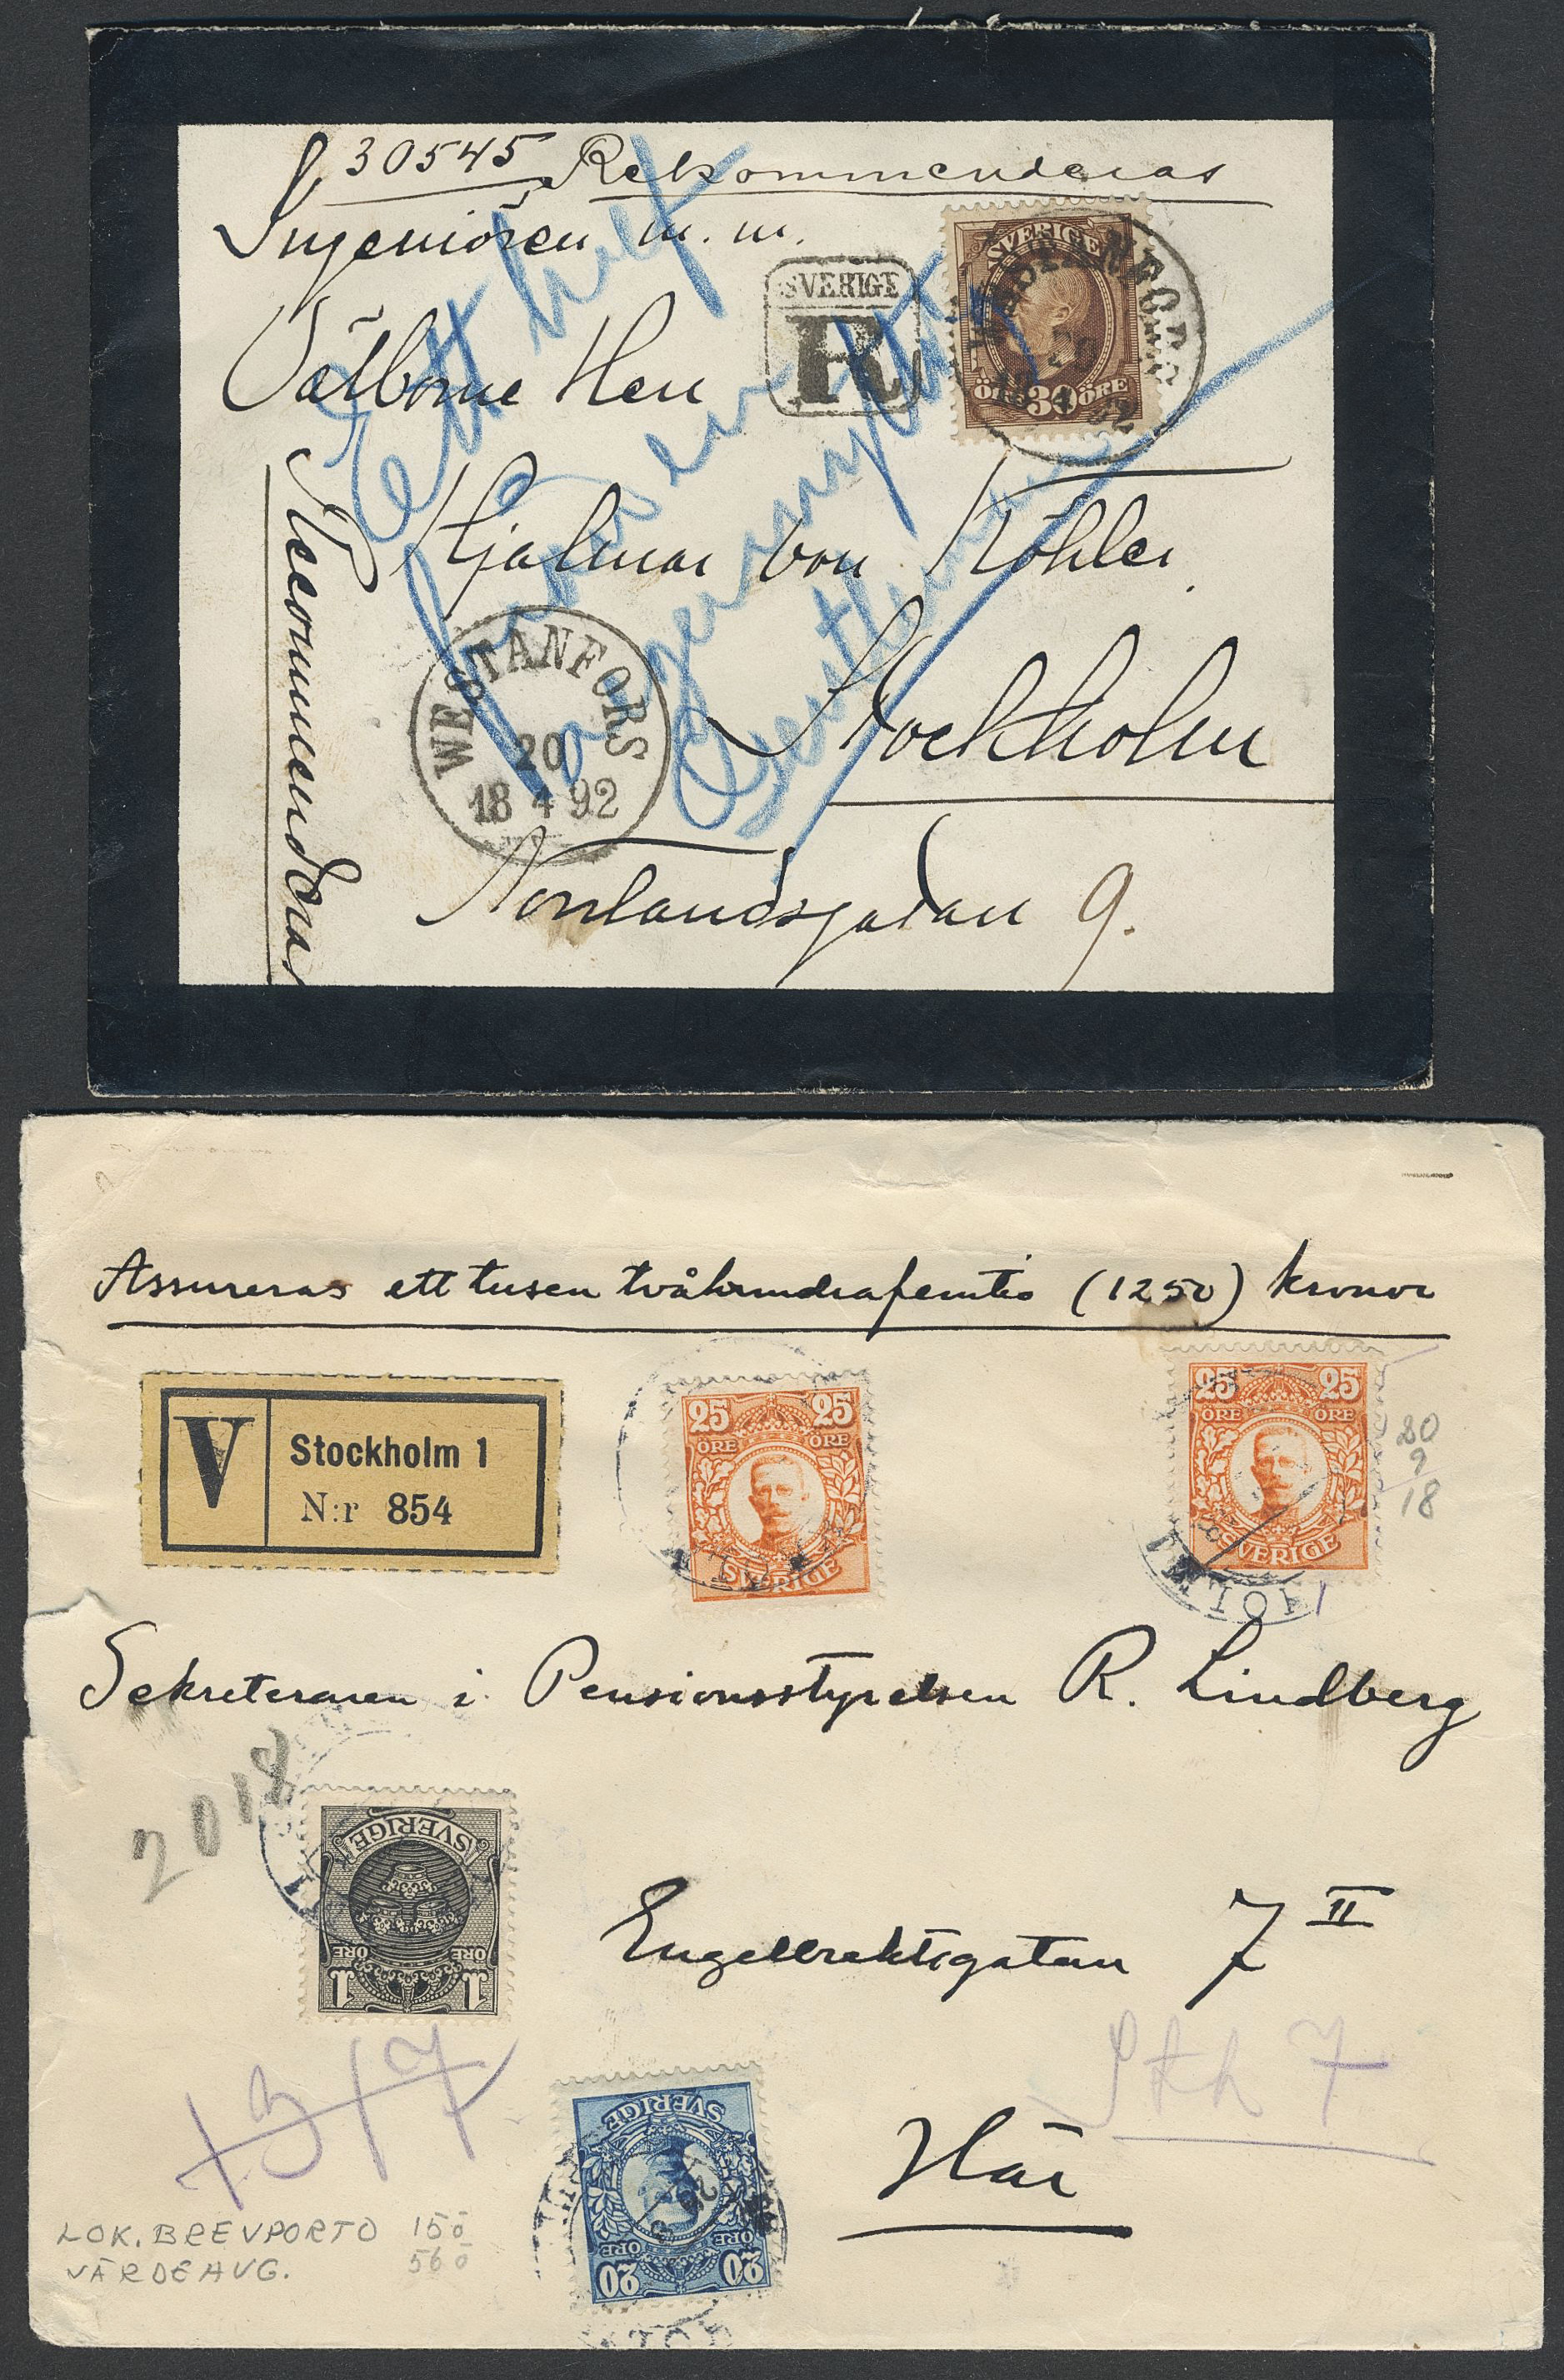 30545 Rekommenderas
Ingeniören m. m.
SVERIGE
R
SVERIGE
30
ÖRE ÖRE
WESTANFORS
Välborne Herr
Hjalmar von Köhler
Stockholm
Norrlandsgatan 9.
Recommenderas
Ett bref
WESTANFORS
20
18 4 92
Assureras ett tusen tvåhundrafemtio (1250) kronor
V
Stockholm 1
N:r 854
25 25
ÖRE ÖRE
SVERIGE
25 25
ÖRE ÖRE
SVERIGE
20
9
18
Sekreteraren i Pensionsstyrelsen R. Lindberg
2018
SVERIGE
ÖRE ÖRE
1 1
Engelbrektsgatan 7 II
Sth 7
Här
SVERIGE
ÖRE ÖRE
20 20
LOK. BREVPORTO 15ö
VÄRDEAVG. 56ö